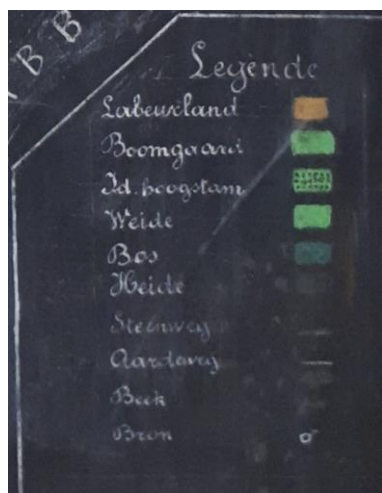 BB
Legende
Labeurland
Boomgaard
Id. hoogstam
Weide
Bos
Heide
Steenweg
Aardeweg
Beek
Bron